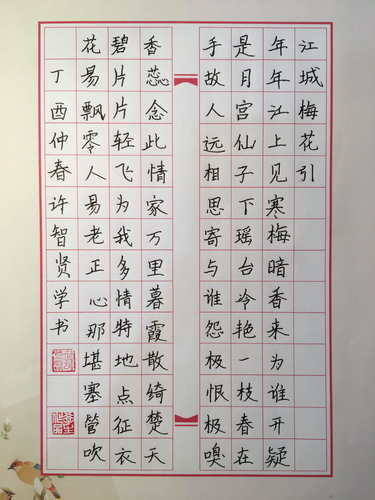 江城梅花引
年年江上见寒梅暗香来为谁开疑
是月宫仙子下瑶台冷艳一枝春在
手故人远相思寄与谁怨极恨极嗅
香蕊念此情家万里暮霞散绮楚天
碧片片轻飞为我多情特地点征衣
花易飘零人易老正心那堪塞管吹
丁酉仲春许智贤学书